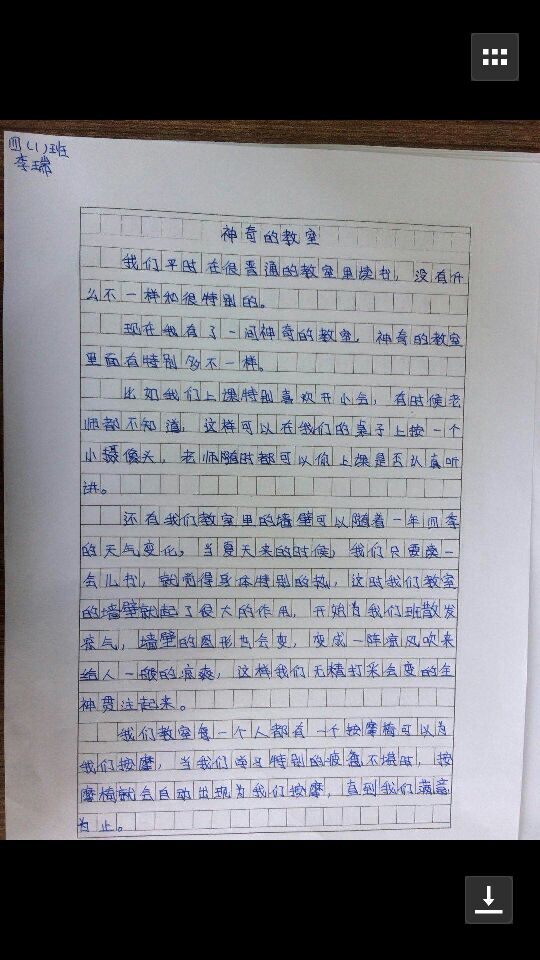 四(1)班
李瑞
神奇的教室
我们平时在很普通的教室里读书,没有什
么不一样和很特别的。
现在我有了一间神奇的教室,神奇的教室
里面有特别多不一样。
比如我们上课特别喜欢开小会,有时候老
师都不知道,这样可以在我们的桌子上按一个
小摄像头,老师随时都可以你上课是否认真听
讲。
还有我们教室里的墙壁可以随着一年四季
的天气变化,当夏天来的时候,我们只要读一
会儿书,就觉得身体特别的热,这时我们教室
的墙壁就起了很大的作用,开始为我们班散发
凉气,墙壁的图形也会变,变成一阵凉风吹来
给人一般的凉爽,这样我们无精打采会变的全
神贯注起来。
我们教室每一个人都有一个按摩椅可以为
我们按摩,当我们学习特别的疲惫不堪时,按
摩椅就会自动出现为我们按摩,直到我们满意
为止。